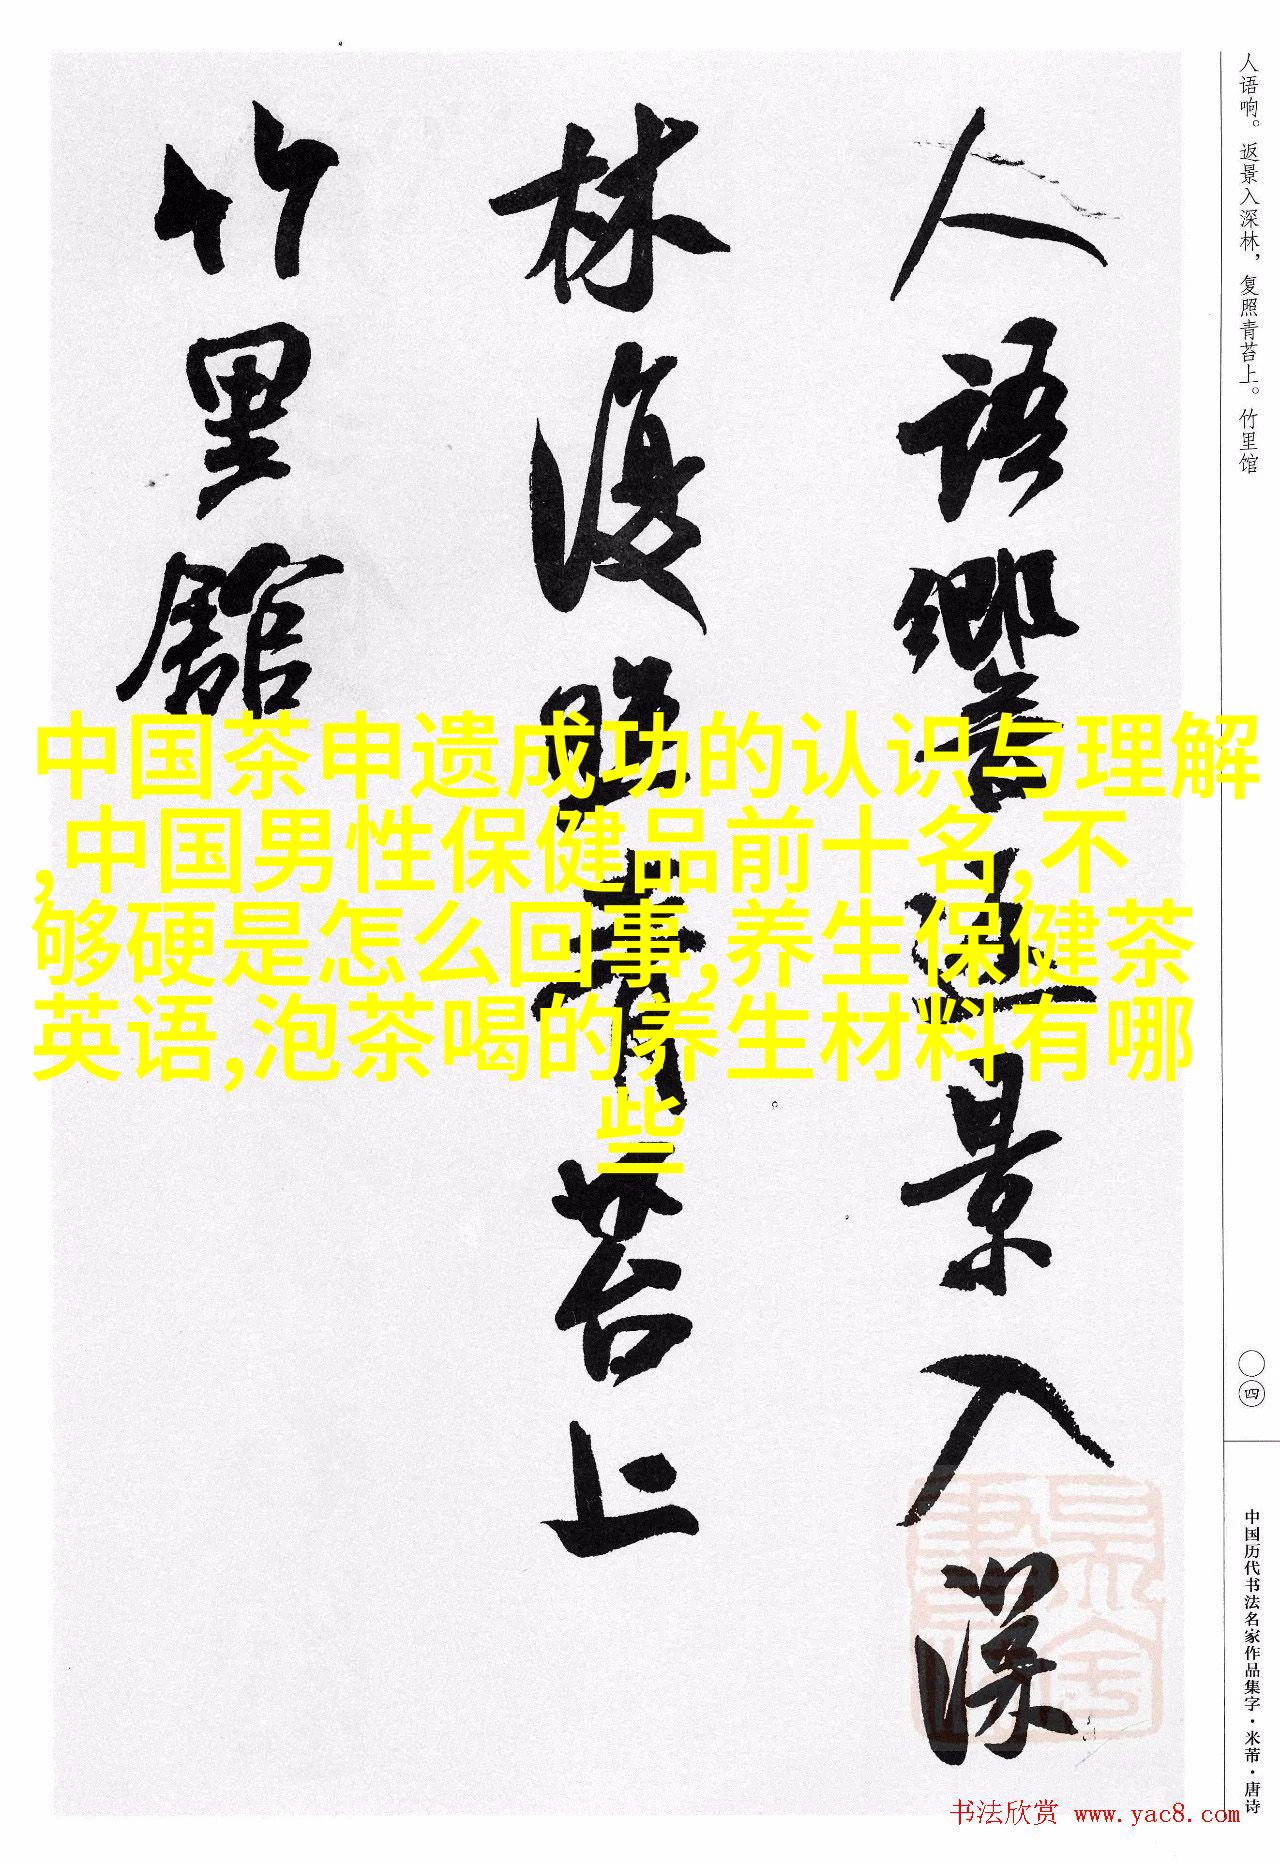 人语响。返景入深林，复照青苔上。竹里馆
人語響返景入深
林復照青苔上
竹里館
中国茶申遗成功的认识与理解
,中国男性保健品前十名,不
够硬是怎么回事,养生保健茶
英语,泡茶喝的养生材料有哪
些
〇四
中国历代书法名家作品集字·米芾·唐诗
书法欣赏 www.yac8.com